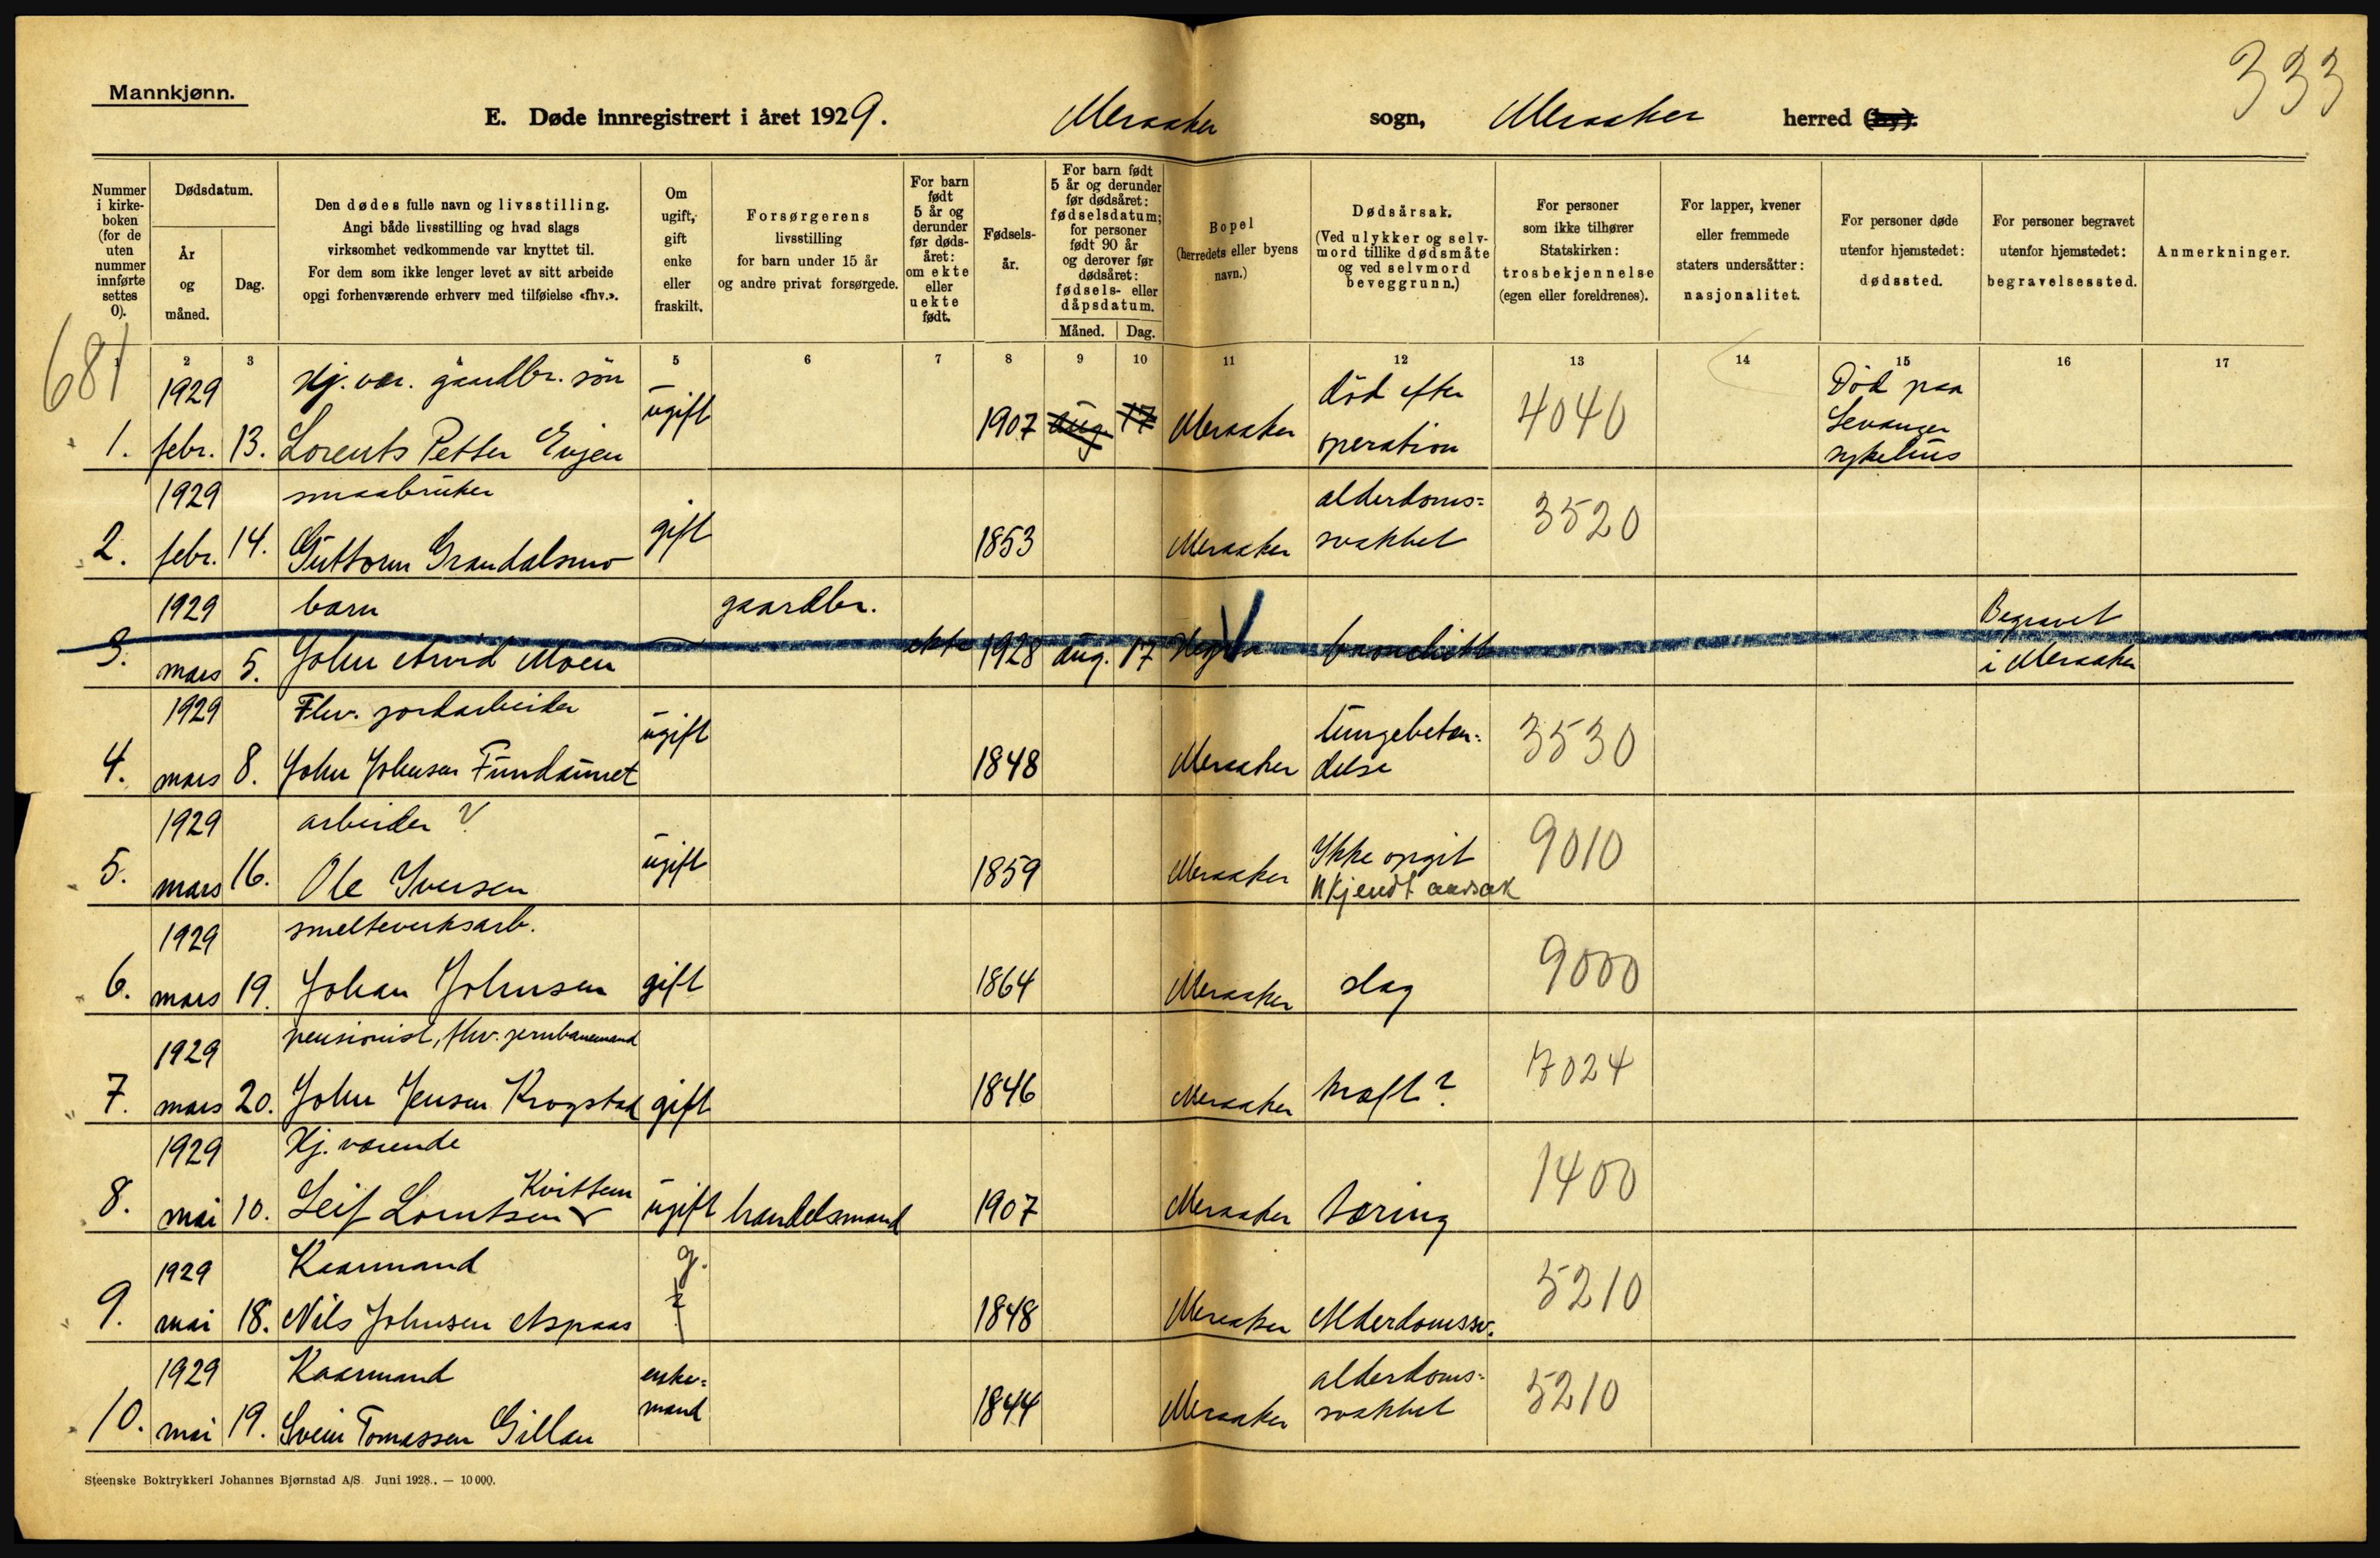 333
Mannkjønn.
E. Døde innregistrert i året 1929. Meraaker sogn, Meraaker herred (by).
Nummer i kirkeboken (for de uten nummer innførte settes 0).
Dødsdatum.
År og måned.
Dag.
Den dødes fulle navn og livsstilling.
Angi både livsstilling og hvad slags
virksomhet vedkommende var knyttet til.
For dem som ikke lenger levet av sitt arbeide
opgi forhenværende erhverv med tilføielse «fhv.».
Om ugift, gift enke eller fraskilt.
Forsørgerens
livsstilling
for barn under 15 år
og andre privat forsørgede.
For barn født 5 år og derunder før dødsåret: om ekte eller uekte født.
Fødselsår.
For barn født 5 år og derunder før dødsåret: fødselsdatum; for personer født 90 år og derover før dødsåret: fødsels- eller dåpsdatum.
Måned. Dag.
Bopel
(herredets eller byens navn.)
Dødsårsak.
(Ved ulykker og selvmord tillike dødsmåte og ved selvmord beveggrunn.)
For personer
som ikke tilhører
Statskirken:
trosbekjennelse
(egen eller foreldrenes).
For lapper, kvener
eller fremmede
staters undersåtter:
nasjonalitet.
For personer døde
utenfor hjemstedet:
dødssted.
For personer begravet
utenfor hjemstedet:
begravelsessted.
Anmerkninger.
681
1 2 3 4 5 6 7 8 9 10 11 12 13 14 15 16 17
1929 Hj. vær. gaardbr. søn død efter Død paa
1. febr. 13. Lorents Petter Evjen ugift 1907 aug. 17 Meraaker operation 4040 Levanger sykehus
1929 smaabruker alderdoms=
2. febr. 14. Guttorm Grandalsmo gift 1853 Meraaker svakhet 3520
1929 barn gaardbr. Begravet
3. mars 5. John Arvid Moen ekte 1928 aug. 17 Hegra bronchitt i Meraaker
1929 Fhv. jordarbeider lungebeten=
4. mars 8. John Johnsen Fundaunet ugift 1848 Meraaker delse 3530
1929 arbeider ? Ikke opgit
5. mars 16. Ole Iversen ugift 1859 Meraaker Ukjendt aarsak 9010
1929 smelteverksarb.
6. mars 19. Johan Johnsen gift 1864 Meraaker slag 9000
1929 pensionist, fhv. jernbanemand
7. mars 20. John Jensen Krogstad gift 1846 Meraaker kræft? 17024
1929 Hj. værende
8. mai 10. Leif Lorntsen Kvittem ugift handelsmand 1907 Meraaker tæring 1400
1929 Kaarmand g.
9. mai 18. Nils Johnsen Aspaas ? 1848 Meraaker Alderdomssv. 5210
1929 Kaarmand enke= alderdoms=
10. mai 19. Svein Tomassen Gillan mand 1844 Meraaker svakhet 5210
Steenske Boktrykkeri Johannes Bjørnstad A/S. Juni 1928.. — 10 000.